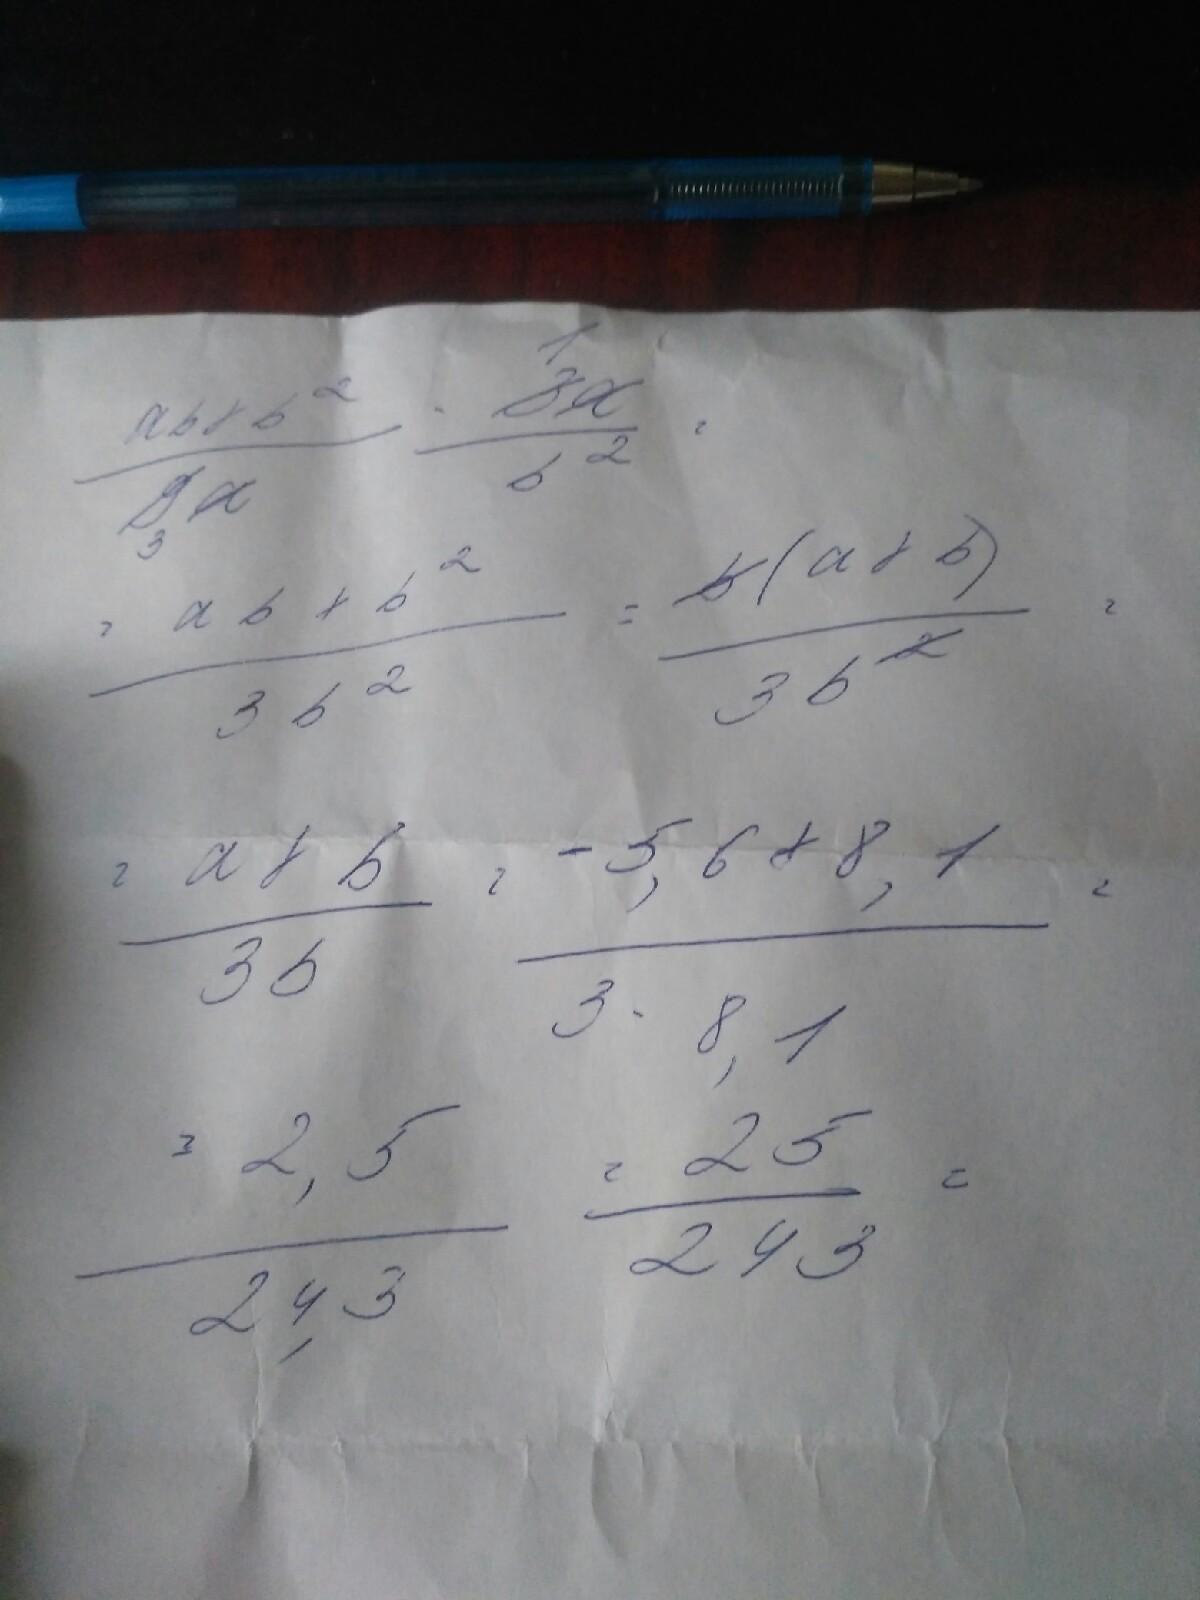 (ab+b²)/(9a) · (3a)/(b²) =
3 1
= (ab+b²)/(3b²) = (b(a+b))/(3b²) =
= (a+b)/(3b) = (-5,6+8,1)/(3·8,1) =
= 2,5/24,3 = 25/243 =